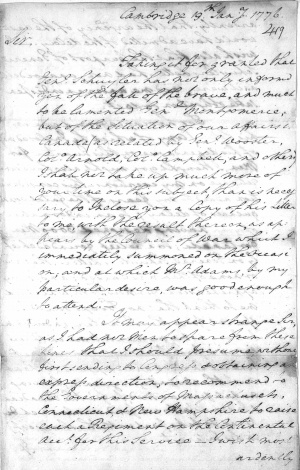 Cambridge 19th Jany. 1776.
419
Sir.
Taking it for granted that
Genl. Schuyler has not only inform'd
you of the fate of the brave, and much
to be lamented Genl. Montgomerie,
but of the situation of our affairs in
Canada, as related by Genl. Wooster,
Colo. Arnold, Colo. Campbell, and others
I shall not take up much more of
your time on this subject, than is neces
sary to Inclose you a Copy of his letter
to me, with the result thereon, as ap
pears by the Council of War, which I
immediately summoned on the occasi
on, and at which Mr. Adams, by my
particular desire, was good enough
to attend.—
It may appear strange Sir
as I had not Men to spare from these
lines, that I should presume without
first sending to Congress & obtaining an
express direction, to recommend to
the Governments of Massachusets,
Connecticut & New Hampshire to raise
each a Regiment on the Continental
Acct. for this Service — I wish most
ardently